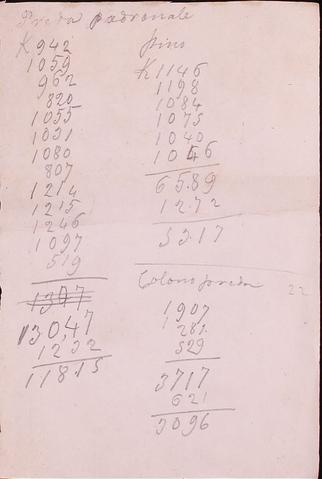 Preda padronale
K 942
1059
962
820
1055
1031
1080
807
1214
1215
1246
1097
519
1307
13047
1232
11815
pino
K 1146
1198
1084
1075
1040
1046
6589
1272
5317
Colono preda 22
1907
1281
529
3717
621
3096